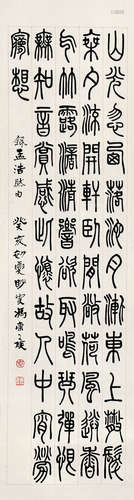 山光忽西落池月漸東上散髮
乘夕涼開軒臥閑敞荷風送香
气竹露滴清響欲取鳴琴彈恨
無知音賞感此懷故人中宵勞
夢想
錄孟浩然句 癸亥初夏 馮康矦